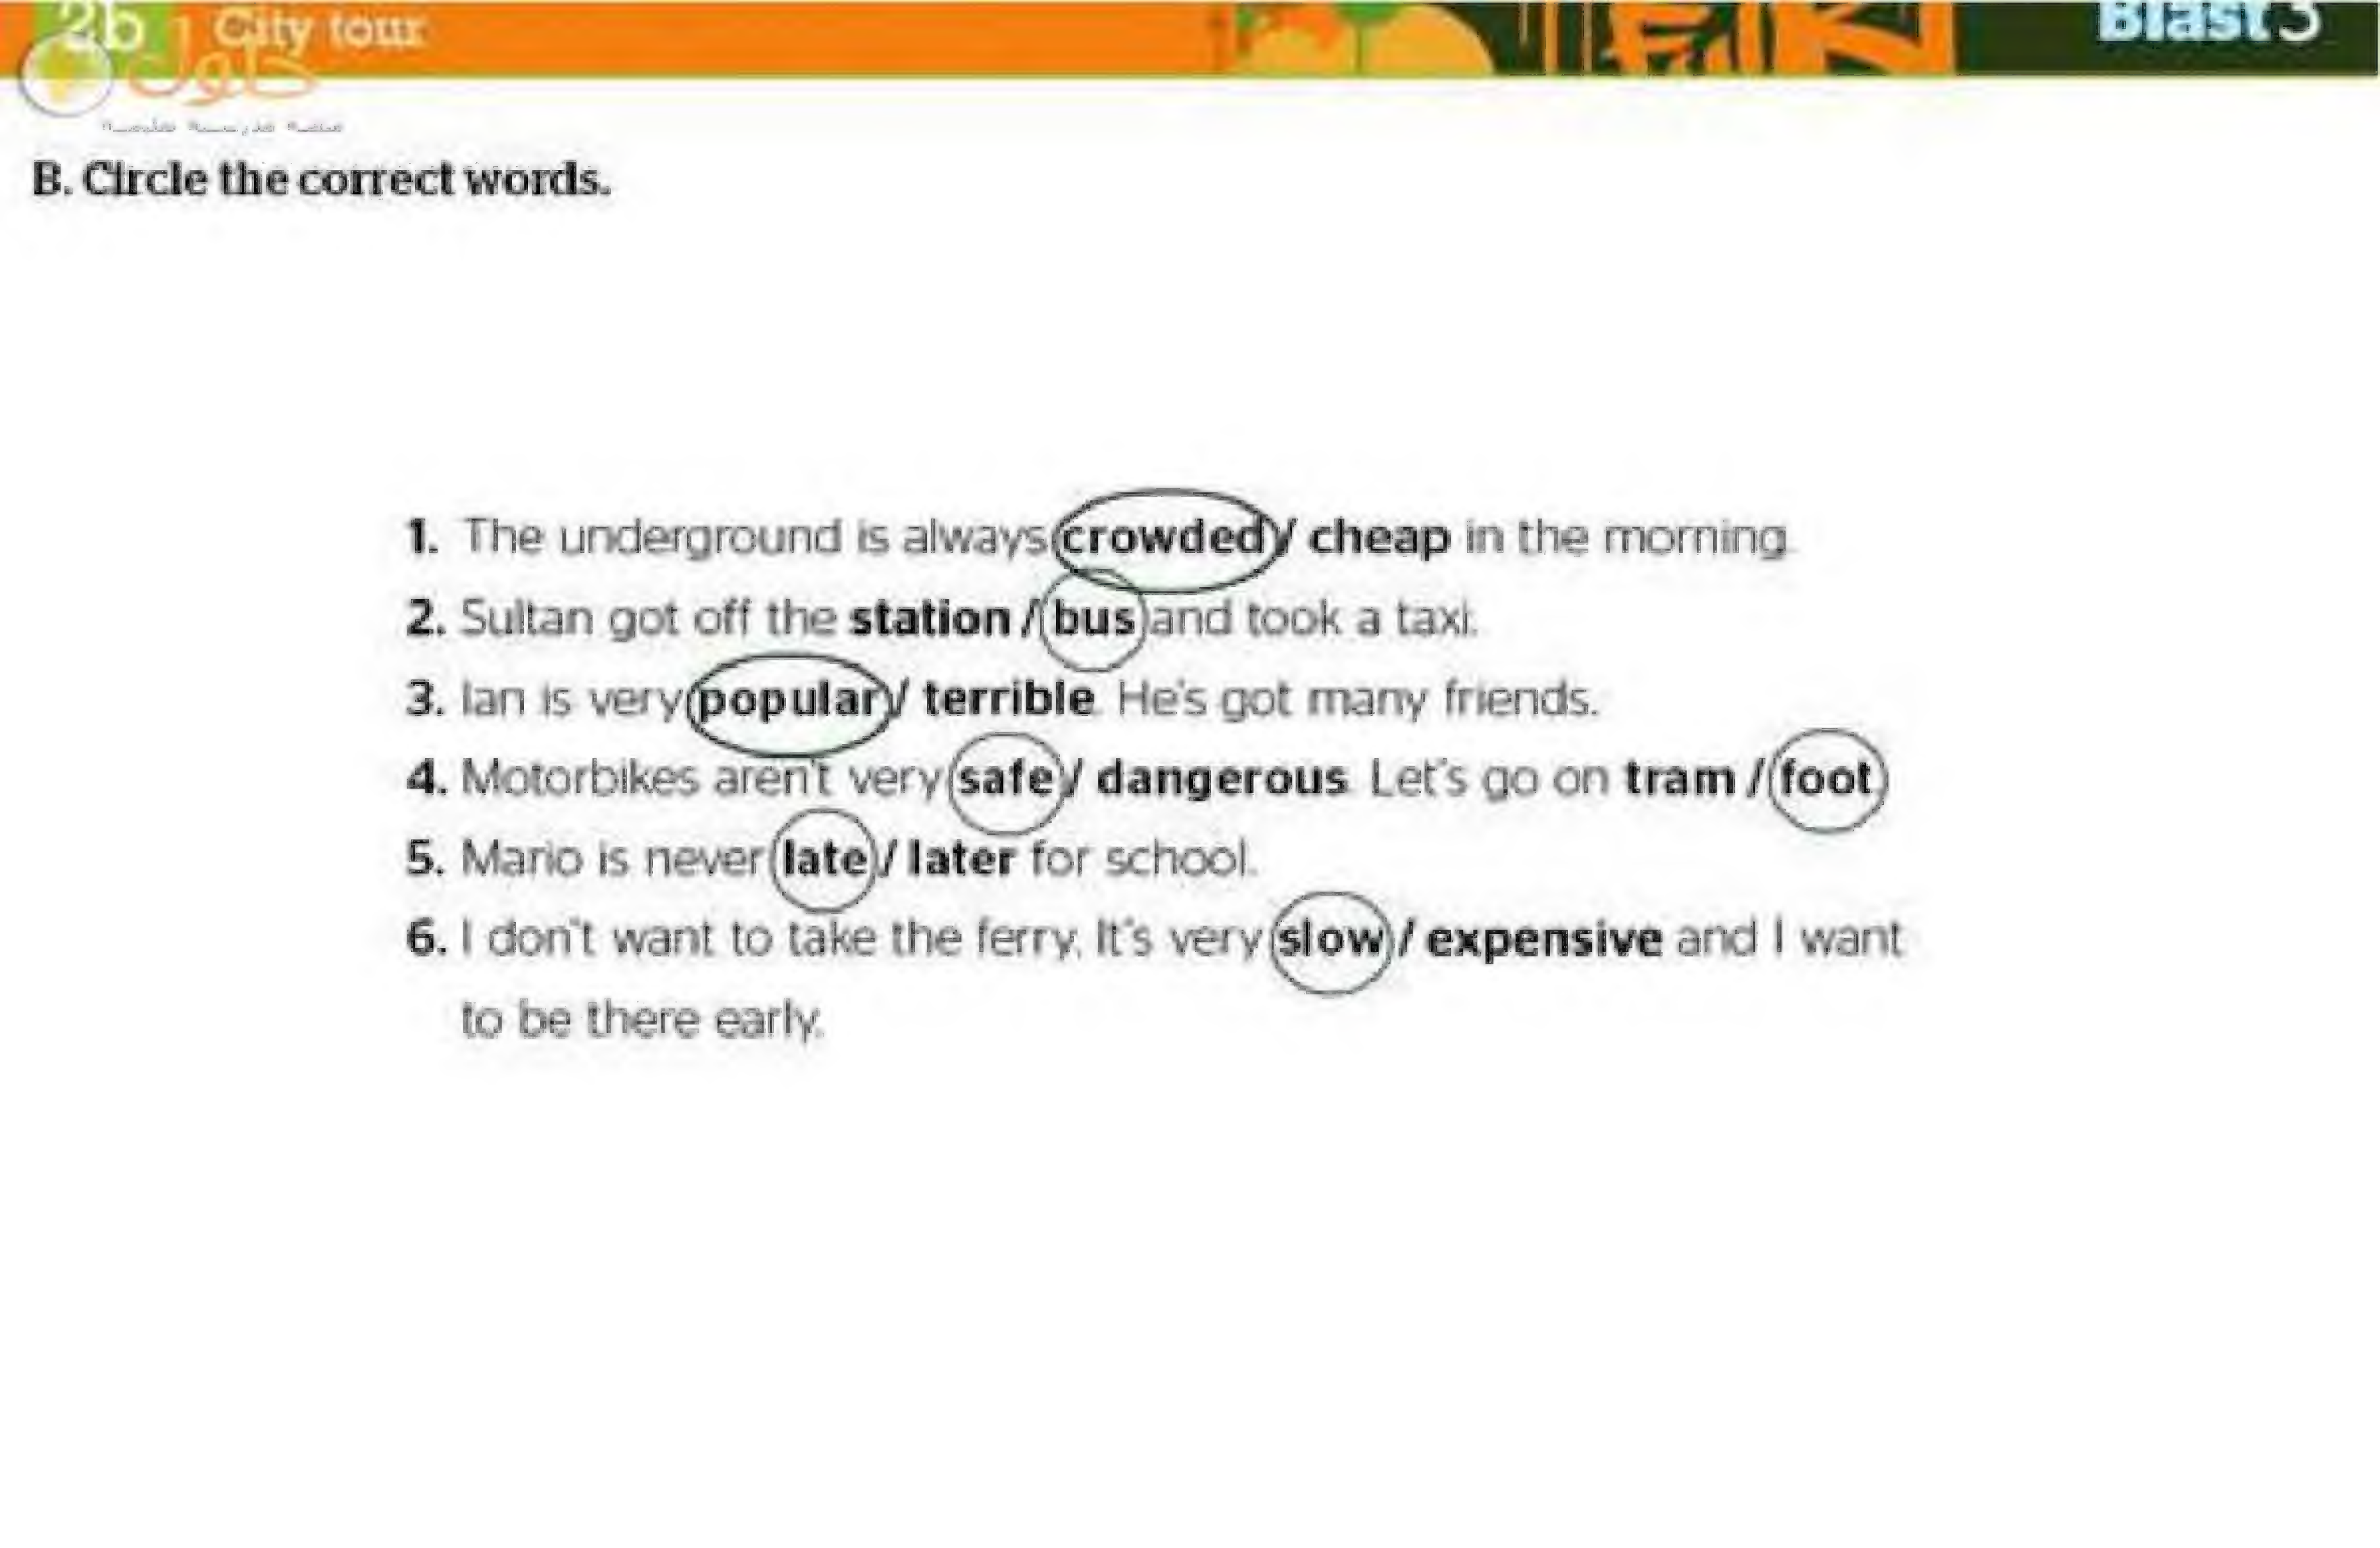 2b City tour
Blast 3
حلول
B. Circle the correct words.
1. The underground is always crowded / cheap in the morning.
2. Sultan got off the station / bus and took a taxi.
3. Ian is very popular / terrible. He's got many friends.
4. Motorbikes aren't very safe / dangerous. Let's go on tram / foot.
5. Mario is never late / later for school.
6. I don't want to take the ferry. It's very slow / expensive and I want
to be there early.